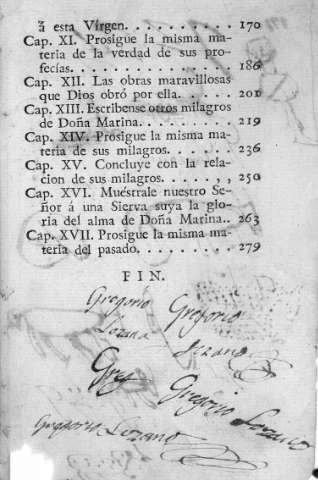 à esta Vírgen. . . . . . . . . . . . 170
Cap. XI. Prosigue la misma ma-
teria de la verdad de sus pro-
fecías. . . . . . . . . . . . . . . . 186
Cap. XII. Las obras maravillosas
que Dios obró por ella. . . . . 201
Cap. XIII. Escribense otros milagros
de Doña Marina. . . . . . . . . 219
Cap. XIV. Prosigue la misma ma-
teria de sus milagros. . . . . . 236
Cap. XV. Concluye con la rela-
cion de sus milagros. . . . . , , 250
Cap. XVI. Muéstrale nuestro Se-
ñor á una Sierva suya la glo-
ria del alma de Doña Marina. . 263
Cap. XVII. Prosigue la misma ma-
teria del pasado. . . . . . . . . . 279
FIN.
Gregorio Gregorio
Lozana Lozano
Greg Gregorio Lozano
Gregorio Lozano